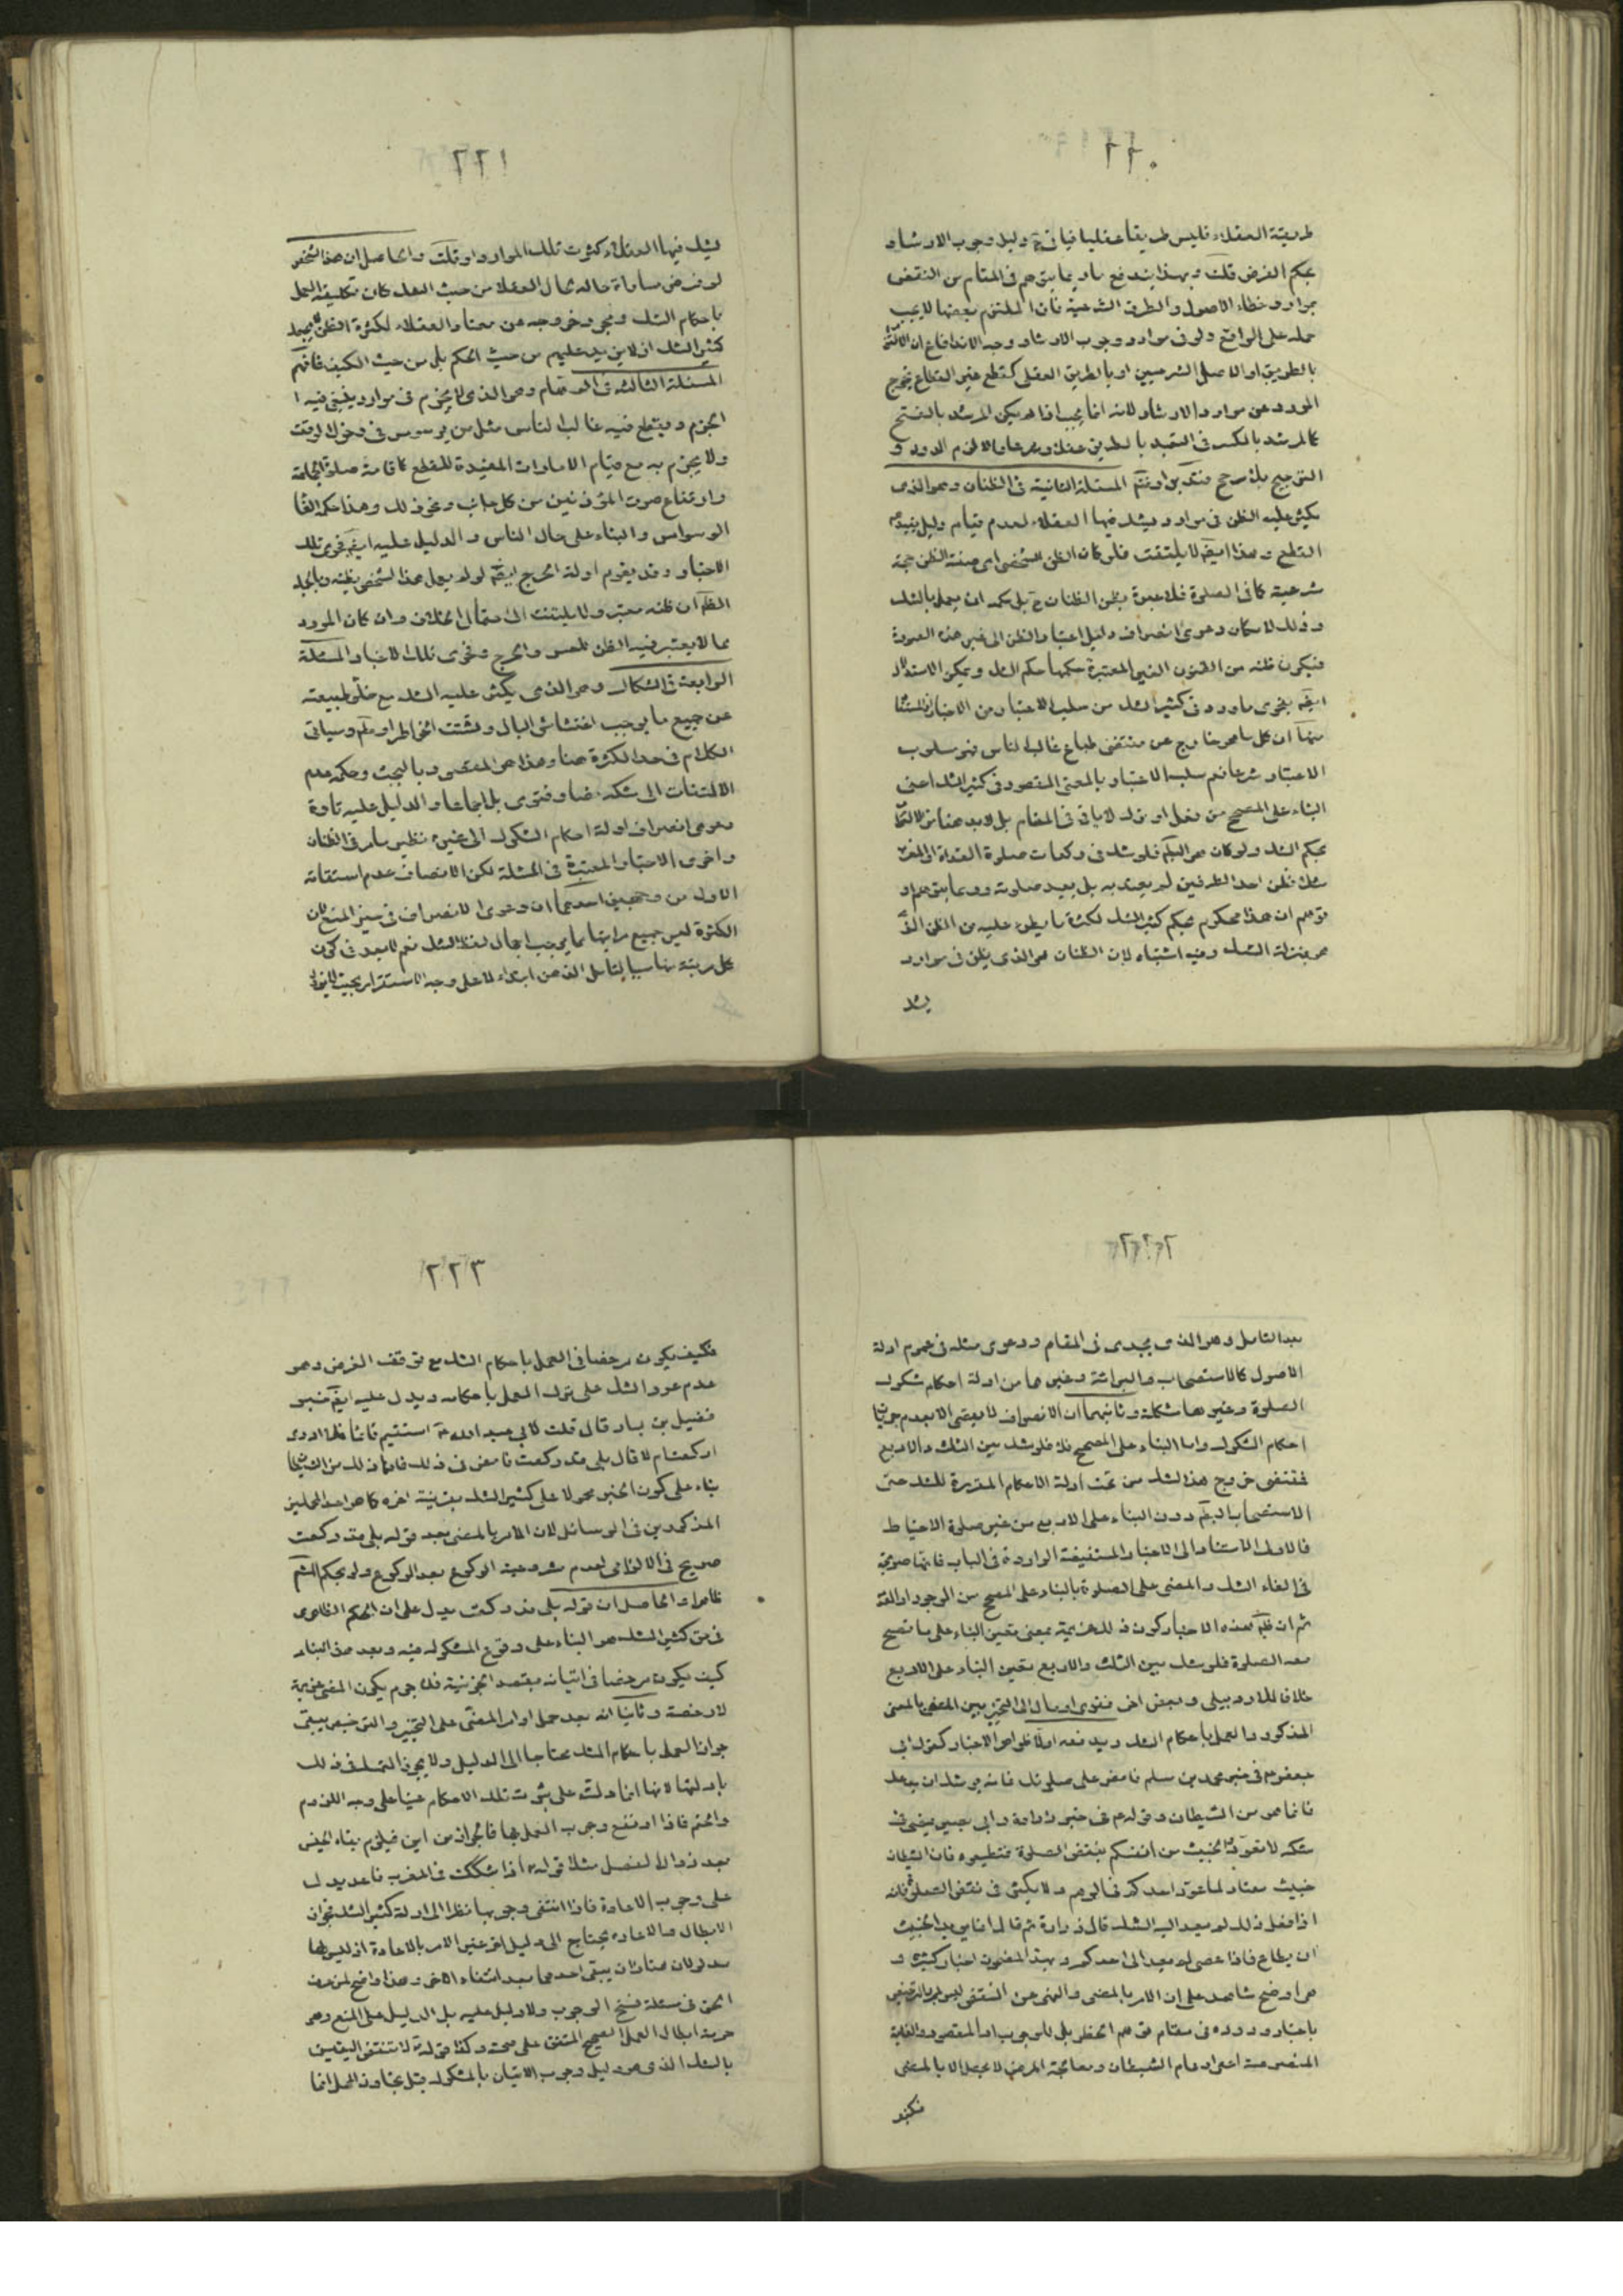 ٢٢٠
طريقة العقلاء فليس طريقا عقليا فيا فى دليل وجوب الارشاد
بحكم الفرض قلت وبهذا يندفع ما ربما يتوهم فى المقام من النقض
بموارد خطاء الاصول والطرق الشرعية فان الملتزم بعضها لا يجب
حمله على الواقع ولو فى موارد وجوب الارشاد وجه الاندفاع ان
بالطريق او الاصل الشرعيين او بالطريق العقلى كقطع غير القطاع يخرج
المورد عن موارد الارشاد لانه انما يجب اذا لم يكن المرشد بالفتح
كالمرشد بالكسر فى التعبد بالطريق عقلا وشرعا والا لزم الدور و
الترجيح بلا مرجح فتدبر المسئلة الثانية فى الظنان وهو الذى
يكثر عليه الظن فى موارد يشك فيها العقلاء لعدم قيام دليل يفيدهم
القطع وهذا ايضا لا يلتفت فلو كان الظن الشخصى اى صفة الظن حجة
شرعية كما فى الصلوة فلا عبرة بظن الظنان ح بل حكمه ان يعمل بالشك
وذلك لامكان دعوى انصراف دليل اعتبار الظن الى غير هذه الصورة
فيكون ظنه من الظنون الغير المعتبرة حكمها حكم الشك ويمكن الاستدلال
ايضا بفحوى ما ورد فى كثير الشك من سلب الاعتبار من الاخبار
منها ان كل ما هو خارج عن مقتضى طباع غالب الناس فهو مسلوب
الاعتبار شرعا نعم سلب الاعتبار بالمعنى المقصود فى كثير الشك اعنى
البناء على المصحح من فعل او ترك لا ياتى فى المقام بل لا بد هنا من
بحكم الشك ولو كان هو البطلان فلو شك فى ركعات صلوة الغداة او المغرب
شك فظن احد الطرفين لم يعتد به بل يعيد صلوته وربما يتوهم او
توهم ان هذا محكوم بحكم كثير الشك لكثرة ما يطرء عليه من الظن الذى
هو بمنزلة الشك وفيه اشتباه لان الظنان هو الذى يظن فى موارد
يشك
٢٢١
يشك فيها العقلاء كثرت تلك الموارد او قلت والحاصل ان هذا الشخص
لو فرض مساواة حاله لحال العقلاء من حيث الشك كان تكليفه العمل
باحكام الشك ومجرد خروجه عن معتاد العقلاء لكثرة الظن لا يجعله
كثير الشك اذ لا يزيد عليهم من حيث الحكم بل من حيث الكيف فافهم
المسئلة الثالثة فى وهو الذى لا يجزم فى موارد ينبغى فيه ا
الجزم ويقطع فيه غالب الناس مثل من يوسوس فى دخول الوقت
ولا يجزم به مع قيام الامارات المفيدة للقطع كاقامة صلوة الجماعة
وارتفاع صوت المؤذنين من كل جانب ونحو ذلك وهذا حكمه الغاء
الوسواس والبناء على حال الناس والدليل عليه ايضا فحوى تلك
الاخبار وقد يقوم ادلة الحرج ايضا لو لم يعمل هذا الشخص بظنه وبالجملة
الظاهر ان ظنه معتبر ولا يلتفت الى احتمال الخلاف وان كان المورد
مما لا يعتبر فيه الظن للعسر والحرج وفحوى تلك الاخبار المسئلة
الرابعة فى الشكاك وهو الذى يكثر عليه الشك مع خلو طبيعته
عن جميع ما يوجب اغتشاش البال وتشتت الخواطر وسياتى
الكلام فى حد الكثرة هنا وهذا هو المقصود بالبحث وحكمه عدم
الالتفات الى شكه نصا وفتوى بل اجماعا والدليل عليه تارة
دعوى انصراف ادلة احكام الشكوك الى غيره نظير ما مر فى الظنان
واخرى الاخبار المعتبرة فى المسئلة لكن الانصاف عدم استقامة
الاول من وجهين احدهما ان دعوى الانصراف فى حيز المنع لان
الكثرة ليس جميع مراتبها مما يوجب اجمال لفظ الشك نعم لا يبعد فى كون
كل مرتبة منها سببا لتامل الذهن ابتداء لا على وجه الاستقرار بحيث لا يزول
٢٢٢
بعد التامل وهو الذى يجدى فى المقام ودعوى مثله فى عموم ادلة
الاصول كالاستصحاب والبرائة وغيرهما من ادلة احكام شكوك
الصلوة وغيرها مشكلة وثانيهما ان الانصراف لا يقتضى الا بعدم جريان
احكام الشكوك واما البناء على المصحح فلا فلو شك بين الثلث والاربع
فمقتضى خروج هذا الشك من تحت ادلة الاحكام المقررة للشك حتى
الاستصحاب البطلان دون البناء على الاربع من غير صلوة الاحتياط
فالاولى الاستناد الى الاخبار المستفيضة الواردة فى الباب فانها صريحة
فى الغاء الشك والمضى على الصلوة بالبناء على المصحح من الوجود او العدم
ثم ان ظاهر هذه الاخبار كون ذلك عزيمة بمعنى تعين البناء على ما تصح
معه الصلوة فلو شك بين الثلث والاربع تعين البناء على الاربع
خلافا للاردبيلى وبعض اخر فقوى او مال الى التخيير بين المضى بالمعنى
المذكور والعمل باحكام الشك ويدفعه اولا ظواهر الاخبار كقول ابى
جعفر ع فى خبر محمد بن مسلم فامض على صلوتك فانه يوشك ان يدعك
فانما هو من الشيطان وقوله ع فى خبر زرارة وابى بصير يمضى فى
شكه لا تعودوا الخبيث من انفسكم بنقض الصلوة فتطمعوه فان الشيطان
خبيث معتاد لما عود احدكم فى الوهم ولا يكثرن نقض الصلوة فانه
اذا فعل ذلك لم يعد اليه الشك قال زرارة ثم قال انما يريد الخبيث
ان يطاع فاذا عصى لم يعد الى احدكم وبهذا المضمون اخبار كثيرة و
هو اوضح شاهد على ان الامر بالمضى والنهى عن النقض ليس لمجرد الترخيص
باعتبار وروده فى مقام توهم الحظر بل للوجوب اذ المقصود والغاية
المنصوصة اعنى ارغام الشيطان ومعالجة المرض لا يحصل الا بالمضى
فكيف
٢٢٣
فكيف يكون مرخصا فى العمل باحكام الشك مع توقف الغرض وهو
عدم عود الشك على ترك العمل باحكامه ويدل عليه ايضا خبر
فضيل بن يسار قال قلت لابى عبد الله ع استتم قائما فلا ادرى
اركعت ام لا قال بلى قد ركعت فامض فى ذلك فانما ذلك من الشيطان
بناء على كون الخبر محمولا على كثير الشك بقرينة اخره كما هو احد المحملين
المذكورين فى الوسائل لان الامر بالمضى بعد قوله بلى قد ركعت
صريح فى الالزامى لعدم مشروعية الركوع بعد الركوع ولو بحكم الشرع
ظاهرا والحاصل ان قوله بلى قد ركعت يدل على ان الحكم الظاهرى
فى حق كثير الشك هو البناء على وقوع المشكوك فيه وبعد هذا البناء
كيف يكون مرخصا فى اتيانه بقصد الجزئية فلا جرم يكون المضى عزيمة
لا رخصة وثانيا انه بعد حمل اوامر المضى على التخيير والترخيص يبقى
جواز العمل باحكام الشك محتاجا الى الدليل ولا يجوز التمسك فى ذلك
بادلتها لانها انما دلت على ثبوت تلك الاحكام عينا على وجه اللزوم
والحتم فاذا ارتفع وجوب العمل بها فالجواز من اين فيلزم بقاء الجنس
بعد زوال الفصل مثلا قوله ع اذا شككت فى المغرب فاعد يدل
على وجوب الاعادة فاذا انتفى وجوبها نظرا الى ادلة كثير الشك فجواز
الابطال والاعادة يحتاج الى دليل اخر غير الامر بالاعادة اذ ليس لها
مدلولان متاران يبقى احدهما بعد انتفاء الاخر وهذا واضح لمن عرف
الحق فى مسئلة نسخ الوجوب ولا دليل عليه بل الدليل على المنع وهو
حرمة ابطال العمل الصحيح المتفق على صحته وكذا قوله ع لا تنقض اليقين
بالشك الذى هو دليل وجوب الاتيان بالمشكوك قبل تجاوز المحل انما